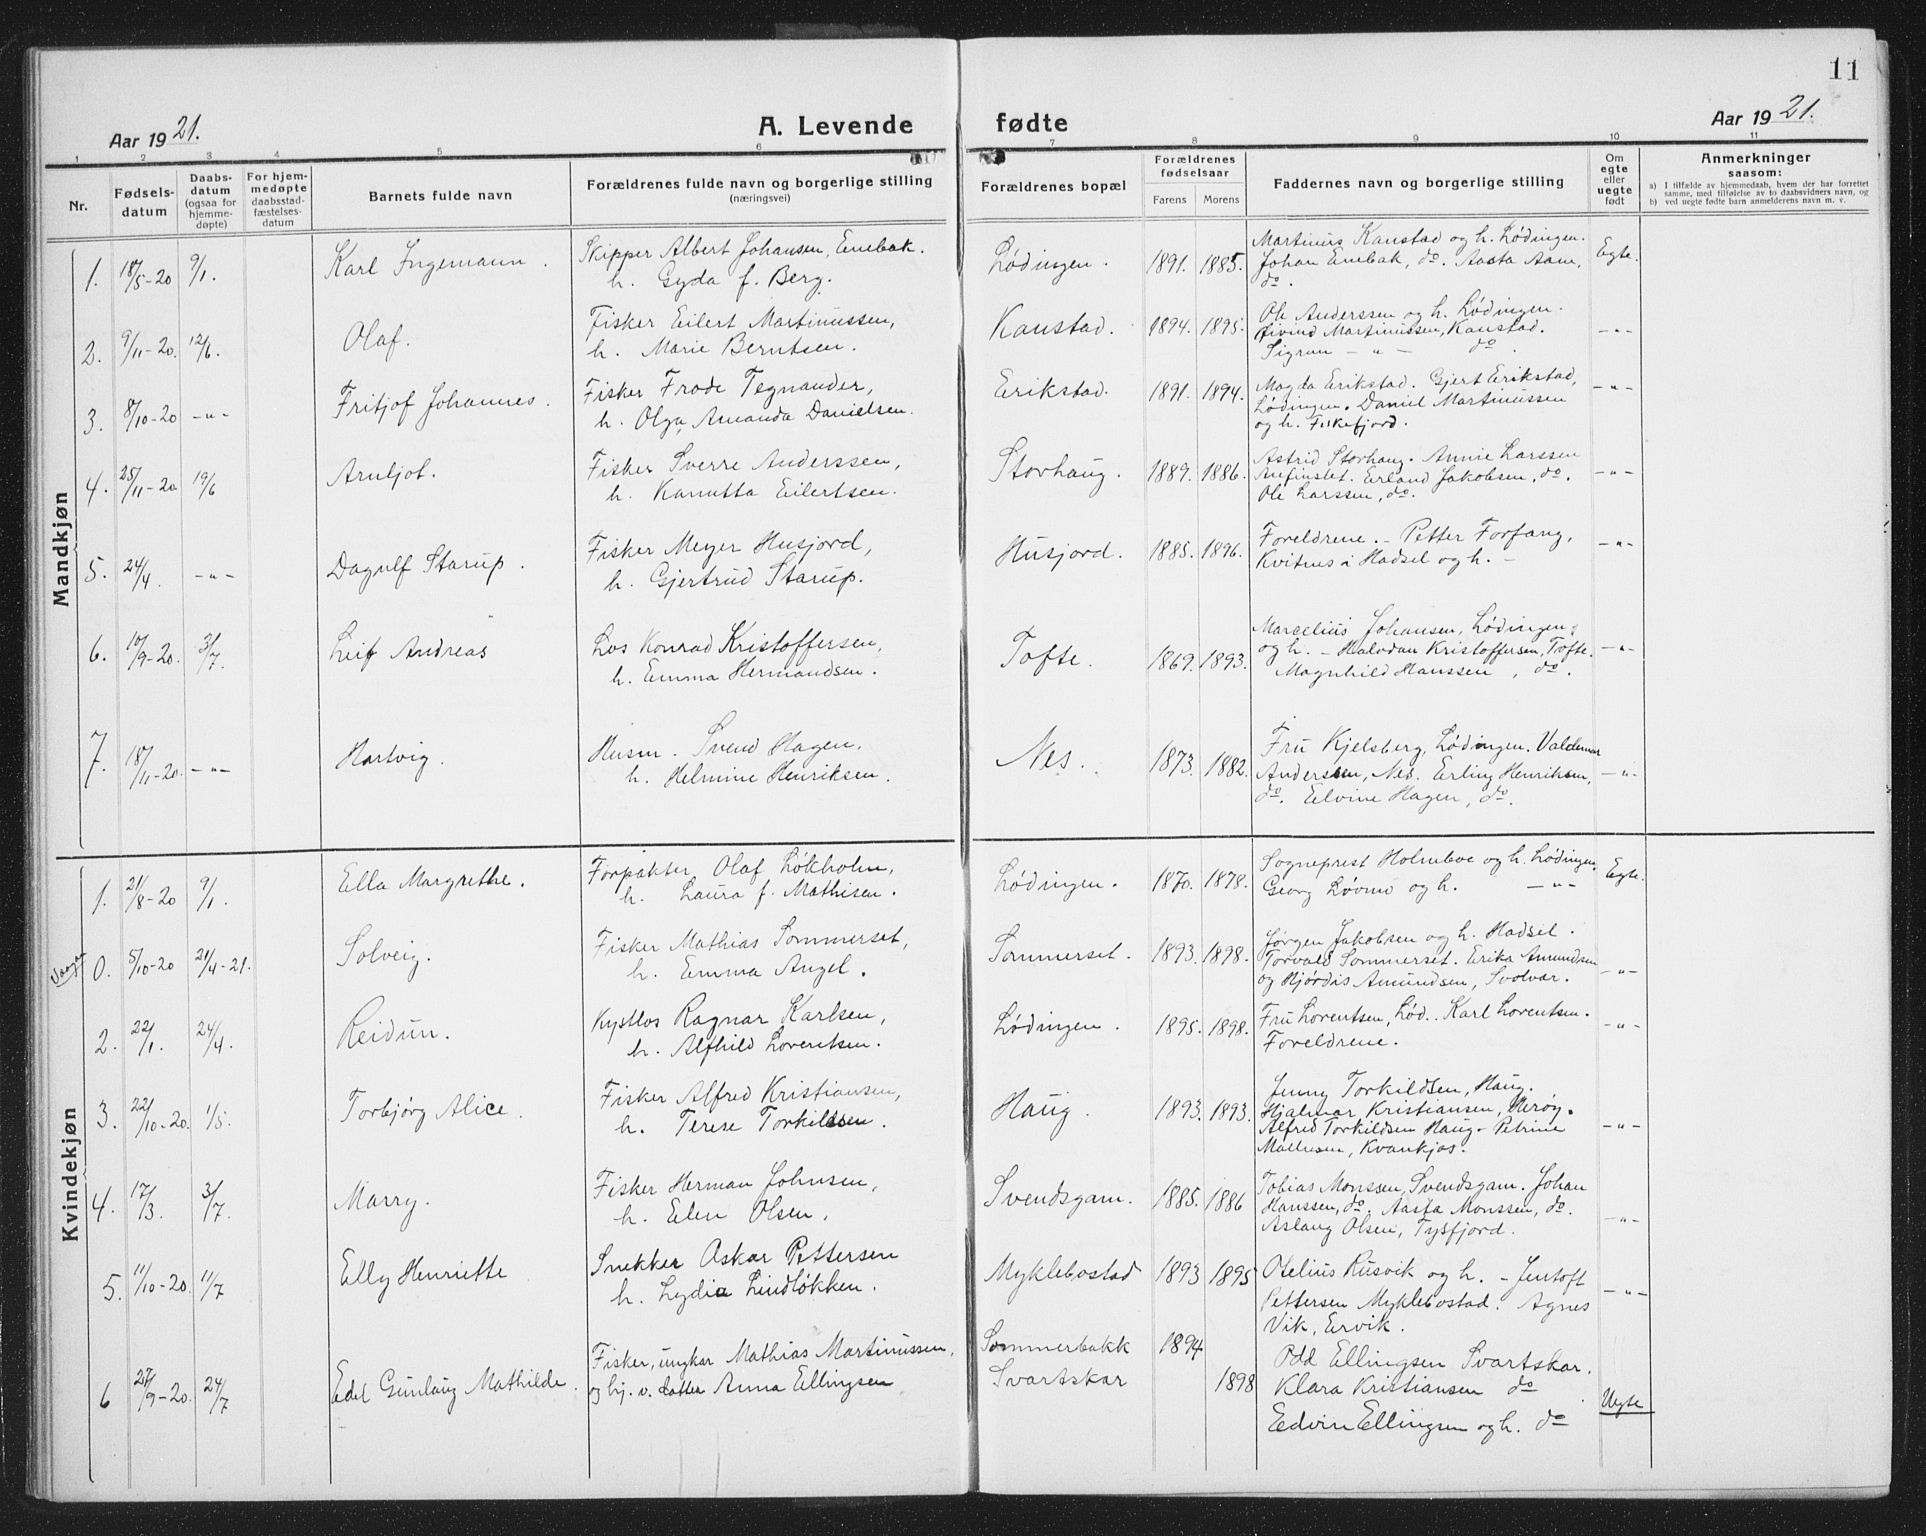 11
Aar 1921.
A. Levende fødte
Aar 1921.
1 2 3 4 5 6 7 8 9 10 11
Nr.
Fødsels-
datum
Daabs-
datum
(ogsaa for
hjemme-
døpte)
For hjem-
medøpte
daabsstad-
fæstelses-
datum
Barnets fulde navn
Forældrenes fulde navn og borgerlige stilling
(næringsvei)
Forældrenes bopæl
Forældrenes
fødselsaar
Farens Morens
Faddernes navn og borgerlige stilling
Om
egte
eller
uegte
født
Anmerkninger
saasom:
a) I tilfælde av hjemmedaab, hvem der har forrettet
samme, med tilføielse av to daabsvidners navn, og
b) ved uegte fødte barn anmelderens navn m. v.
Mandkjøn
1. 18/5-20 9/1. Karl Ingemann.
Skipper Albert Johansen, Enebak.
h. Gyda f. Berg.
Lødingen. 1891. 1885.
Martinus Kanstad og h. Lødingen.
Johan Enebak, do. Aasta Aam,
do.
Egte.
2. 9/11-20 12/6. Olaf.
Fisker Eilert Martinussen,
h. Marie Berntsen.
Kanstad. 1894. 1895.
Ole Anderssen og h. Lødingen.
Øivind Martinussen, Kanstad.
Sigrun — " — do.
— " —
3. 8/10-20 — " — Fritjof Johannes.
Fisker Frode Tegnander,
h. Olga Amanda Danielsen.
Erikstad. 1891. 1894.
Magda Erikstad. Gjert Erikstad,
Lødingen. Daniel Martinussen
og h. Fiskefjord.
— " —
4. 25/11-20 19/6 Arnljot.
Fisker Sverre Anderssen,
h. Kanutta Eilertsen.
Storhaug. 1889. 1886.
Astrid Storhaug. Annie Larssen
Anfinslet. Erland Jakobsen, do.
Ole Larssen, do.
— " —
5. 24/4. — " — Dagulf Starup.
Fisker Meyer Husjord,
h. Gjertrud Starup.
Husjord. 1885. 1896.
Foreldrene. — Petter Forfang,
Kvitnes i Hadsel og h. —
— " —
6. 10/9-20. 3/7. Leif Andreas
Los Konrad Kristoffersen,
h. Emma Hermandsen.
Tofte. 1869. 1893.
Marcelius Johansen, Lødingen,
og h. — Halvdan Kristoffersen, Tofte.
Magnhild Hanssen, do.
— " —
7. 18/11-20. — " — Hartvig.
Husm. Svend Hagen,
h. Helmine Henriksen.
Nes. 1873. 1882.
Fru Kjelsberg, Lødingen. Valdemar
Anderssen, Nes. Erling Henriksen,
do. Elvine Hagen, do.
— " —
Kvindekjøn
1. 21/8-20 9/1. Ella Margrethe.
Forpakter Olaf Løkholm,
h. Laura f. Mathisen.
Lødingen. 1870. 1878.
Sogneprest Holmboe og h. Lødingen.
Georg Løvmo og h. — " —
Egte.
Vaagan
0. 5/10-20 21/4-21. Solveig.
Fisker Mathias Sommerset,
h. Emma Angel.
Sommerset. 1893. 1898.
Jørgen Jakobsen og h. Hadsel.
Torvald Sommerset. Erika Amundsen
og Hjørdis Amundsen, Svolvær.
— " —
2. 22/1. 24/4. Reidun.
Kystlos Ragnar Karlsen,
h. Alfhild Lorentsen.
Lødingen. 1895. 1898.
Fru Lorentsen, Lød. Karl Lorentsen.
Foreldrene.
— " —
3. 22/10-20. 1/5. Torbjørg Alice.
Fisker Alfred Kristiansen,
h. Terese Torkildsen.
Haug. 1893. 1893.
Jenny Torkildsen, Haug.
Hjalmar Kristiansen, Herøy.
Alfred Torkildsen Haug. Petrine
Mathisen, Kvankjos.
— " —
4. 17/3. 3/7. Marry.
Fisker Herman Johnsen,
h. Elen Olsen,
Svendsgam. 1885. 1886
Tobias Monssen, Svendsgam. Johan
Hanssen, do. Aasta Monssen, do.
Aslaug Olsen, Tysfjord.
— " —
5. 11/10-20. 11/7 Elly Henriette
Snekker Oskar Pettersen
h. Lydia Lindløkken.
Myklebostad 1893 1895
Otelius Rusvik og h. — Jentoft
Pettersen Myklebostad. Agnes
Vik, Ervik.
— " —
6 27/9-20. 24/7 Edel Gunlaug Mathilde.
Fisker, ungkar Mathias Martinussen,
og hj. v. datter Anna Ellingsen
Sommerbakk 1894
Svartskar 1898
Odd Ellingsen Svartskar.
Klara Kristiansen do
Edvin Ellingsen og h. do
Uegte